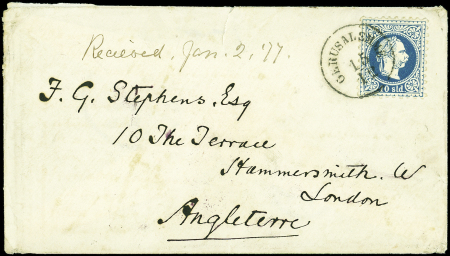 Recieved. Jan. 2, '77.
GERUSALEMME
10 sld
F. G. Stephens, Esq
10 The Terrace
Hammersmith. W
London
Angleterre